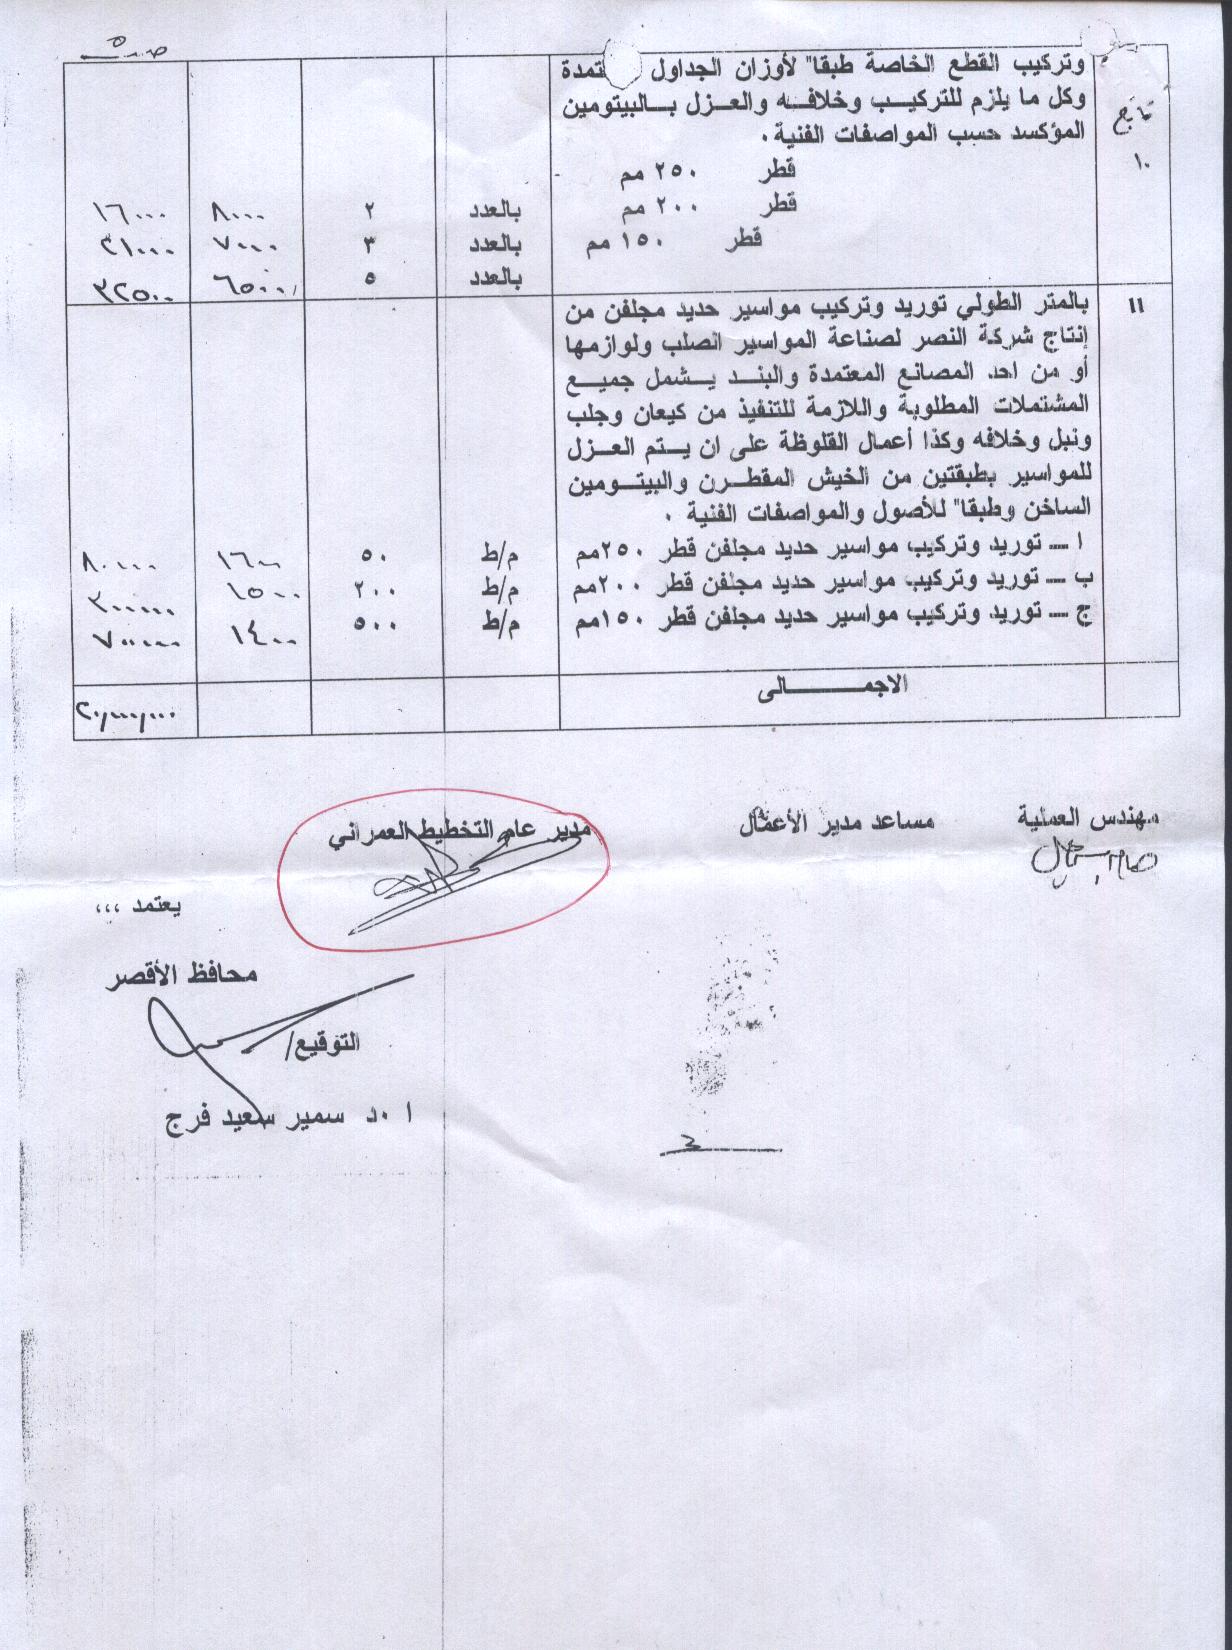 صـ٥
تابع
١٠
وتركيب القطع الخاصة طبقا" لأوزان الجداول تمدة
وكل ما يلزم للتركيب وخلافه والعزل بالبيتومين
المؤكسد حسب المواصفات الفنية .
قطر ٢٥٠ مم
قطر ٢٠٠ مم بالعدد ٢ ٨٠٠٠ ١٦٠٠٠
قطر ١٥٠ مم بالعدد ٣ ٧٠٠٠ ٢١٠٠٠
بالعدد ٥ ٦٥٠٠ ٣٢٥٠٠
١١ بالمتر الطولي توريد وتركيب مواسير حديد مجلفن من
إنتاج شركة النصر لصناعة المواسير الصلب ولوازمها
أو من احد المصانع المعتمدة والبند يشمل جميع
المشتملات المطلوبة واللازمة للتنفيذ من كيعان وجلب
ونبل وخلافه وكذا أعمال القلوظة على ان يتم العزل
للمواسير بطبقتين من الخيش المقطرن والبيتومين
الساخن وطبقا" للأصول والمواصفات الفنية .
ا ـ توريد وتركيب مواسير حديد مجلفن قطر ٢٥٠مم م/ط ٥٠ ١٦٠٠ ٨٠٠٠٠
ب ـ توريد وتركيب مواسير حديد مجلفن قطر ٢٠٠مم م/ط ٢٠٠ ١٥٠٠ ٣٠٠٠٠٠
ج ـ توريد وتركيب مواسير حديد مجلفن قطر ١٥٠مم م/ط ٥٠٠ ١٤٠٠ ٧٠٠٠٠٠
الاجمـــالى
مهندس العملية مساعد مدير الأعمال مدير عام التخطيط العمراني
يعتمد ،،،
محافظ الأقصر
التوقيع/
ا .د سمير سعيد فرج